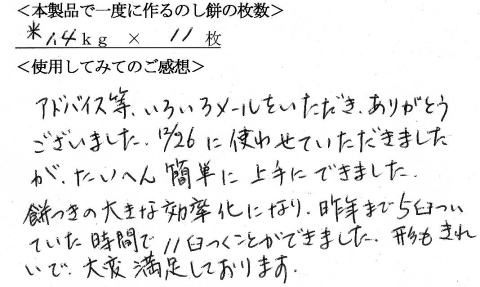 ＜本製品で一度に作るのし餅の枚数＞
米1.4kg × 11枚
＜使用してみてのご感想＞
アドバイス等、いろいろメールをいただき、ありがとう
ございました。12/26に使わせていただきました
が、たいへん簡単に上手にできました。
餅つきの大きな効率化になり、昨年まで5臼つい
ていた時間で11臼つくことができました。形もきれ
いで、大変満足しております。